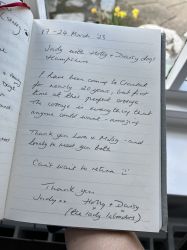 17 - 24 March '23
Judy with Holly + Daisy dogs
Hampshire
I have been coming to
for nearly 20 years, but first
time at this present cottage
The cottage is everything that
anyone could want - amazing
Thank you Laura + Molly - and
lovely to meet you both
Can't wait to return
Thank you
Judy xx Holly + Daisy
(the lady labradors)